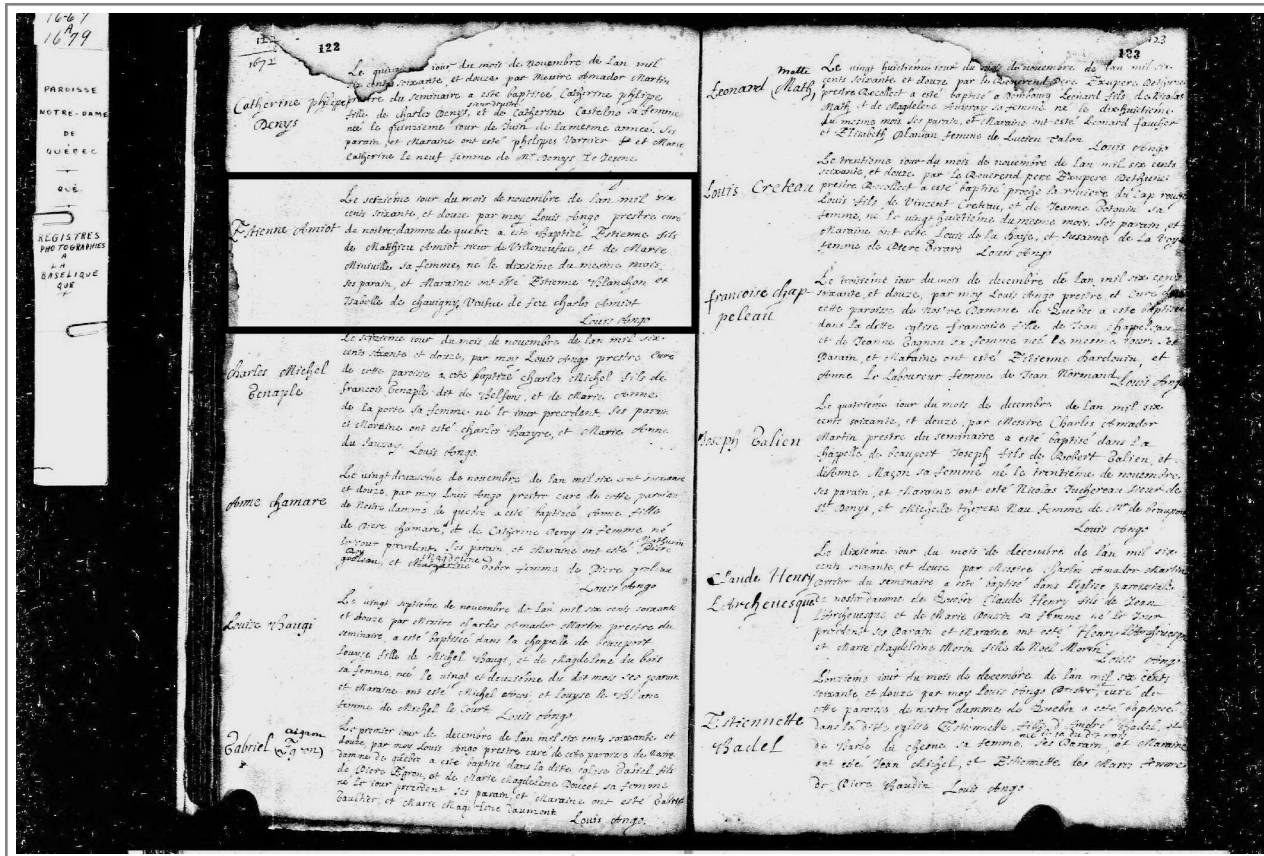 16-67
A
1679
PAROISSE
NOTRE-DAME
DE
QUÉBEC
QUÉ.
REGISTRES
PHOTOGRAPHIES
A
LA
BASELIQUE
QUE
122
1672
122
Le iour du mois de Novembre de Lan mil
soixante, et douze par Messire Amador Martin
Catherine philipe
Denys
prestre du seminaire a este baptisée Catherine philipe
fille de charles Denys, et de Catherine Castelno sa femme
née le quinzième iour de Juin de la mesme année. Ses
parain, et Maraine ont esté philipes et Marie
Catherine le neuf femme de Mr Denys Le Jeune
Estienne Amiot
Le seizième iour du mois de novembre de lan mil six
cents soixante, et douze, par moy Louis Ango prestre curé
de nostre damme de quebec a este Baptizé Estienne fils
de Mathieu Amiot sieur de Villeneufue, et de Marie
Miniuille sa femme, né le dixième du mesme mois,
ses parain, et Maraine ont esté Estienne Blanchon et
Isabelle de chauigny, Veufue de feu charles Amiot
Louis Ango
Charles Michel
Genaple
Le seizième iour du mois de novembre de lan mil six
cents soixante et douze, par moy Louis Ango prestre curé
de cette paroisse a esté baptizé charles Michel fils de
francois Genaple dit de Belfons, et de Marie Anne
de la porte sa femme né le iour precedant, ses parain
et Maraine ont esté charles Bazyre, et Marie Anne
du Sauzay. Louis Ango.
Anne chamare
Le vingt deuxième de novembre de lan mil six cent soixante
et douze, par moy Louis Ango prestre curé de cette paroisse
de Nostre damme de quebec a esté baptizée Anne fille
de Piere chamare, et de Catherine Deroy sa femme né
le iour precedent, Ses parain, et Maraine ont esté
Louis Ango
Louize Baugi
Le vingt septième de novembre de lan mil six cents soixante
et douze par Messire charles Amador Martin prestre du
seminaire, a esté baptizée dans la chapelle de beauport
Louyse fille de Michel Baugi, et de Magdelene du bois
sa femme, née le vingt et deuxième du dit mois ses parain
et Maraine ont esté Michel et Louyse le Blanc
femme de Michel le Court Louis Ango
Gabriel (Egron)
Le premier iour de decembre de lan mil six cents soixante, et
douze, par moy Louis Ango prestre curé de cete paroisse de Notre
damme de quebec a esté baptizé dans la dite église Gabriel fils
de Piere Egron, et de Marie Magdelene Doucet sa femme
né le iour precedent ses parain, et Maraine ont esté Gabriel
Gaultier, et Marie Magdelene Gaumont
Louis Ango.
123
123
Leonard Math
Matte
Le vingt huitième iour du mois de novembre de lan mil six
cents soixante et douze par le Reuerend pere Exupere Dethune
prestre Recollect a esté baptizé a Leonard fils de Nicolas
Math et de Magdelene Auvray sa femme né le dixhuitième
du mesme mois ses parain, et Maraine ont esté Leonard faucher
et Elisabeth femme de Lucien Talon
Louis Ango
Louis Creteau
Le trentième iour du mois de novembre de lan mil six cents
soixante, et douze par le Reuerend pere Exupere Dethune
prestre Recollect a esté baptizé proche la riuiere du Cap rouge
Louis fils de Vincent Creteau, et de Jeanne Gotquin sa
femme, né le vingt huitième du mesme mois. Ses parain, et
Maraine ont esté Louis de la haye, et Susanne de La Voye
femme de Piere Girard Louis Ango
francoise chap-
peleau
Le troisième iour du mois de decembre de lan mil six cents
soixante, et douze, par moy Louis Ango prestre et Curé de
cette paroisse de Nostre Damme de Quebec a esté baptizée
dans la dite eglise francoise fille de Jean chapeleau
et de Jeanne Gagnon sa femme né le mesme iour. Ses
Parain, et Maraine ont esté Estienne Charlouin, et
Anne Le Laboureur femme de Jean Normand Louis Ango
Joseph Galien
Le quatrième iour du mois de decembre de lan mil six
cents soixante, et douze, par Messire Charles Amador
Martin prestre du seminaire a esté baptizé dans La
chappelle de beauport Joseph fils de Robert Galien, et
Maçon sa femme né le trentième de novembre.
ses parain, et Maraine ont esté Nicolas Juchereau sieur de
St Denys, et Michelle therese Nau femme de Mr de beauport
Louis Ango
Claude Henry
L'Archeuesque
Le dixième iour du mois de decembre de lan mil six
cents soixante et douze par Messire Charles Amador Martin
Prestre du seminaire a esté baptizé dans l'eglise paroissiale
de nostre damme de Quebec Claude Henry fils de Jean
l'Archeuesque et de Marie sa femme né le Iour
precedent Ses Parain et Maraine ont esté Henry l'Archeuesque
et Marie Magdeleine Morin fille de Noel Morin
Louis Ango
Estiennette
Badel
L'onzième iour du mois de decembre de lan mil six cents
soixante et douze par moy Louis Ango Prestre, curé de
cette paroisse de nostre damme de Quebec a esté baptizée
dans la dite eglise Estiennette fille d'André Badel, et
de Barbe du chesne sa femme, Ses Parain, et Maraine
ont esté Jean Michel, et Estiennette des Marés femme
de Piere Baudin Louis Ango